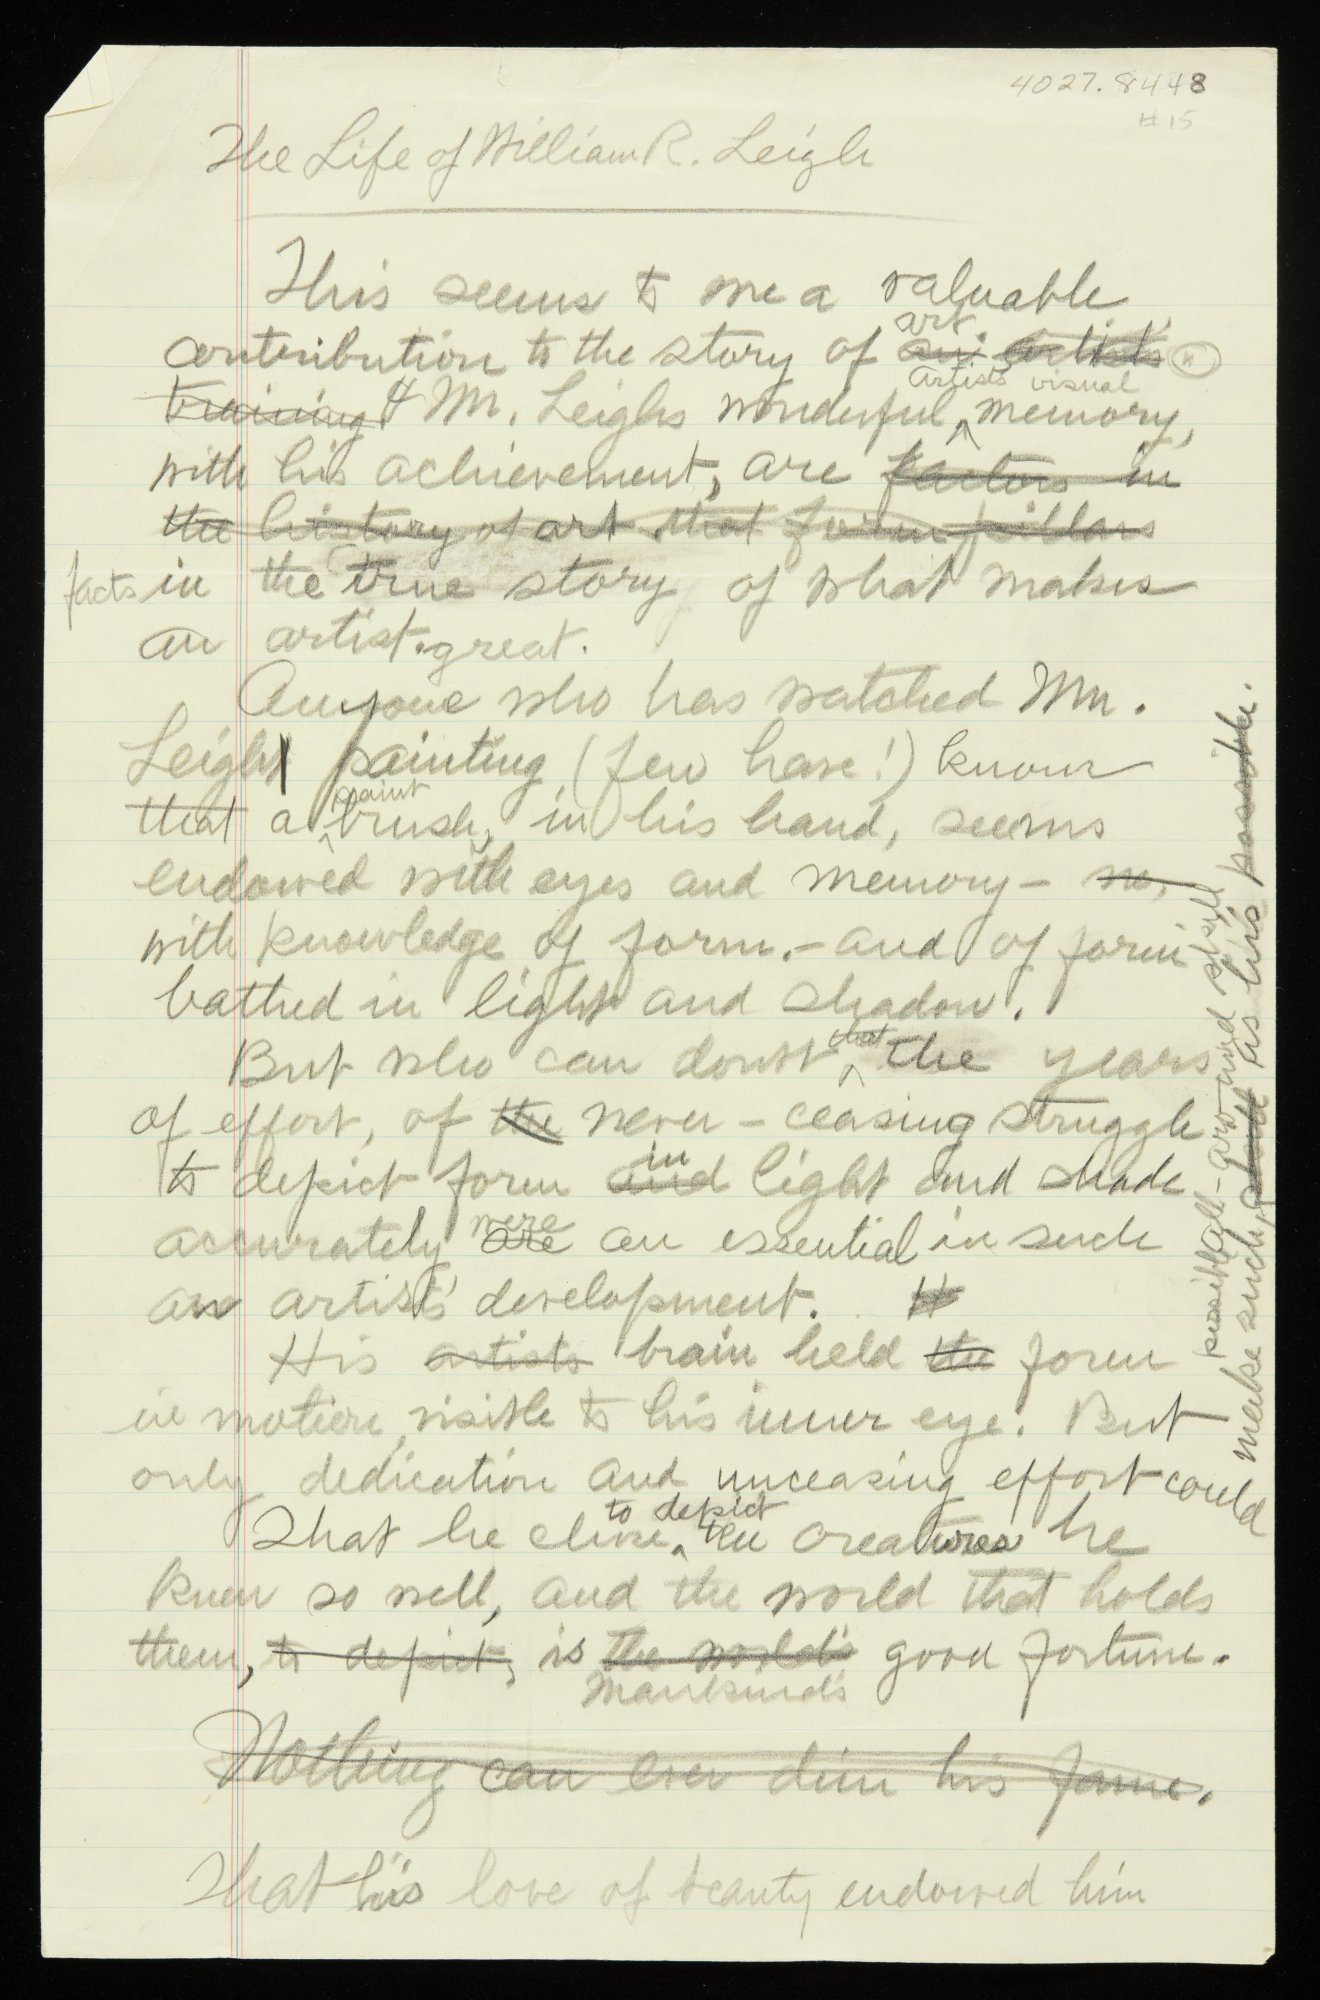 4027.8448
#15
The Life of William R. Leigh
This seems to me a valuable
art.
contribution to the story of an artist's
artists visual
training & Mr. Leighs wonderful memory,
with his achievement, are factors in
the history of art that form pillars
facts in the true story of what makes
an artist great.
Anyone who has watched Mr.
Leigh painting (few have!) knows
paint
that a brush, in his hand, seems
endowed with eyes and memory - no,
with knowledge of form. - and of form
bathed in light and shadow.
that
But who can doubt the years
of effort, of the never-ceasing struggle
in
to depict form and light and shade
were
accurately are an essential in such
an artist's development. H
His artists brain held the form
in motion, visible to his inner eye. But
only dedication and unceasing effort could
make such, skill as his possible.
possible all-around skill
to depict
That he chose the creatures he
knew so well, and the world that holds
them, to depict, is the world's good fortune.
Mankind's
Nothing can ever dim his fame.
That his love of beauty endowed him